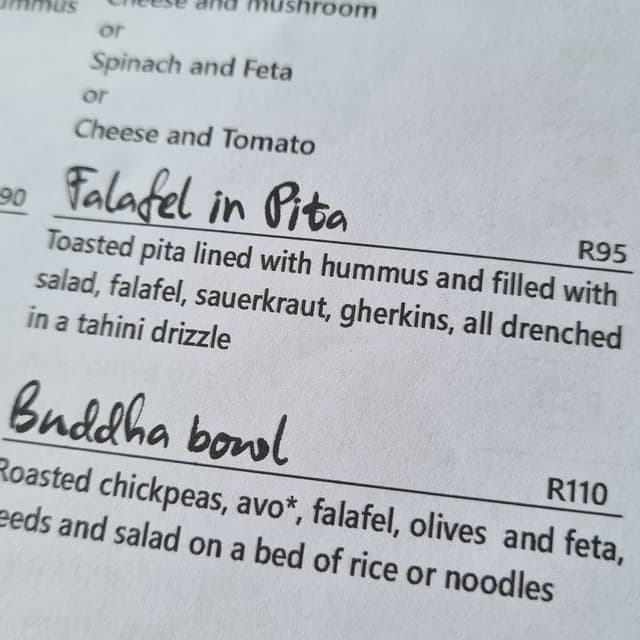 Cheese and mushroom
or
Spinach and Feta
or
Cheese and Tomato
90
Falafel in Pita
R95
Toasted pita lined with hummus and filled with
salad, falafel, sauerkraut, gherkins, all drenched
in a tahini drizzle
Buddha bowl
R110
Roasted chickpeas, avo*, falafel, olives and feta,
eeds and salad on a bed of rice or noodles